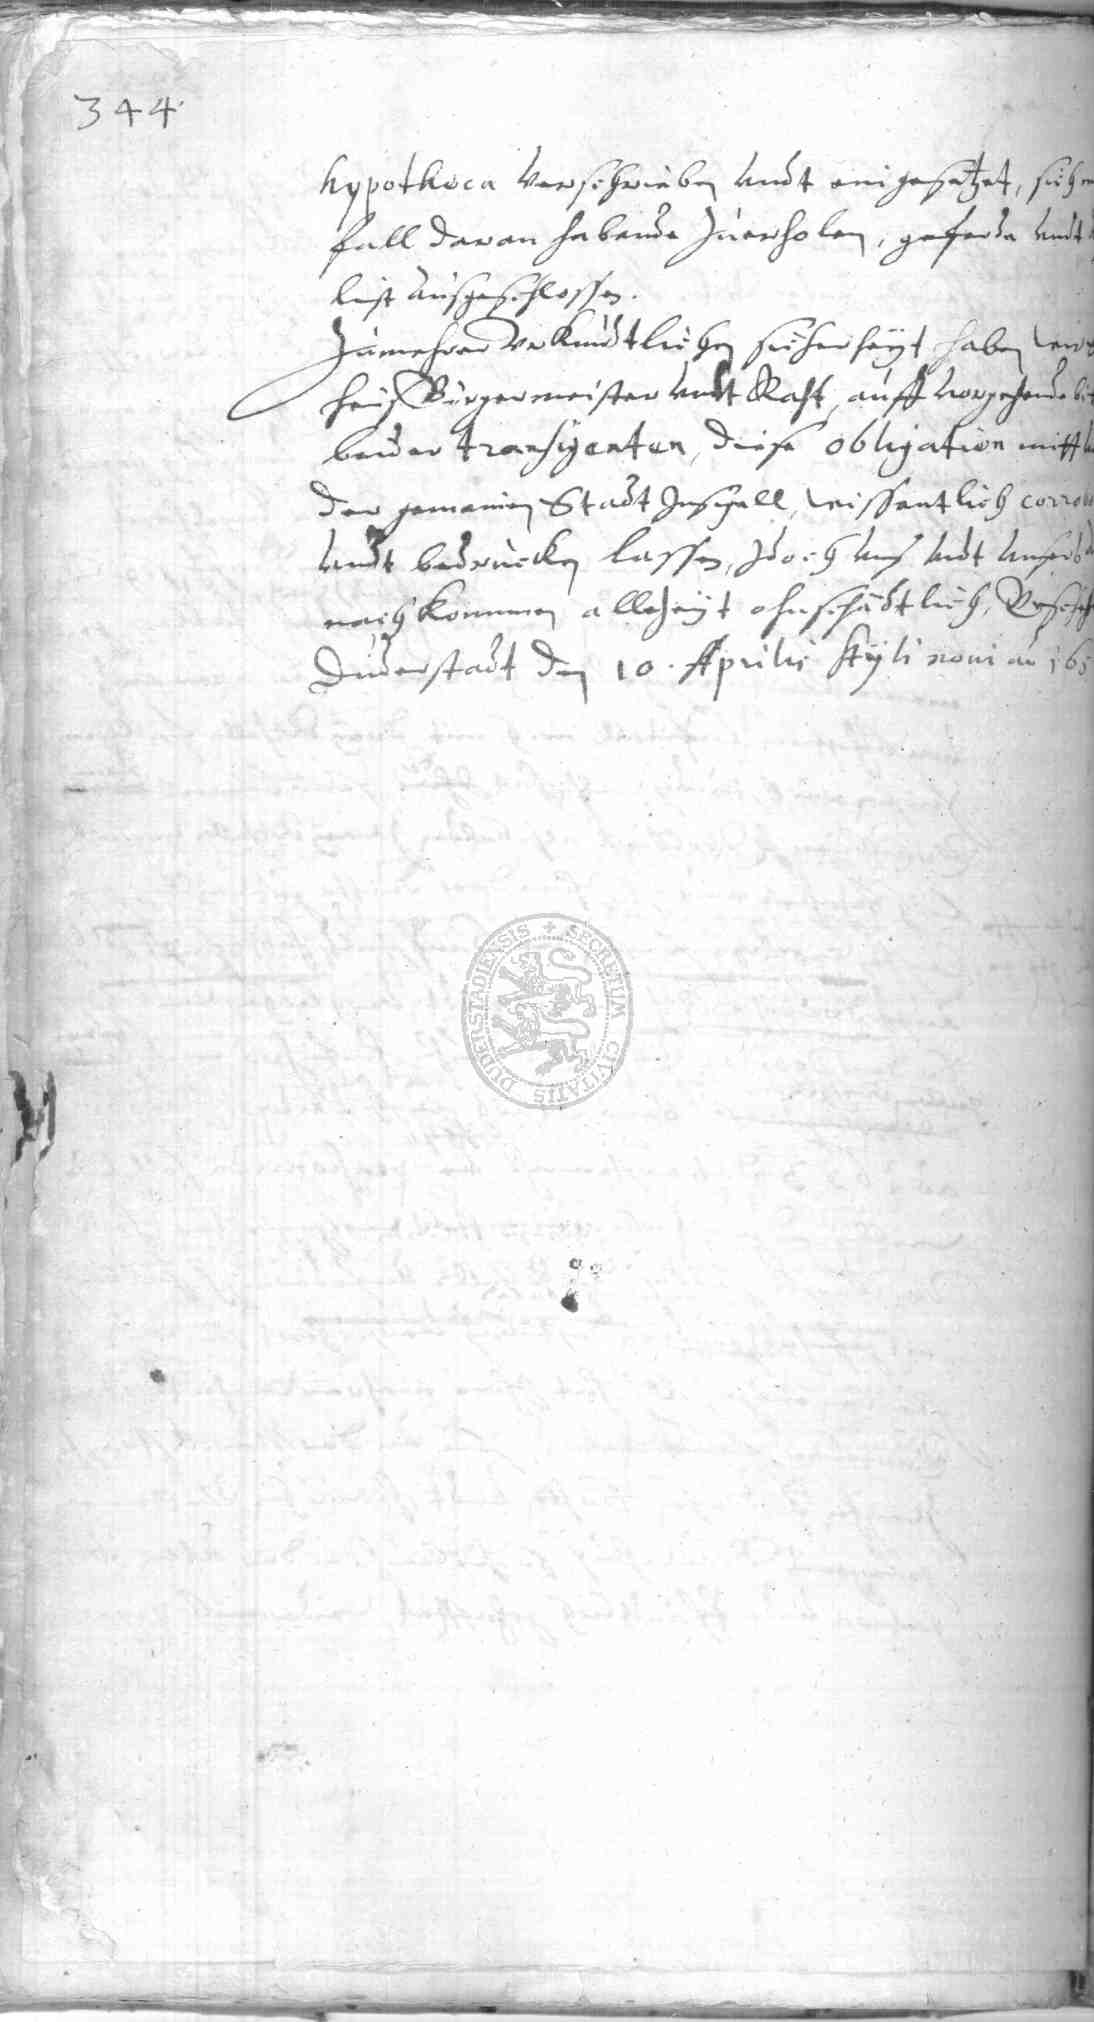 344
hypotheca verschrieben undt eingesetzet, sich
fall daran habende Zuerholen, geferde undt
list ausgeschlossen.
Zumehrer Uhrkundtlichen sicherheyt haben wir
Bürgermeister undt Raht, auff vorgehende
beider transigenten, diese obligation mitt
der gemeinen Stadt Insigell, wissentlich
undt bedrucken lassen, Jdoch uns undt unsern
nachkommen allezeyt ohnschädtlich,
Duderstadt den 10. Aprilis styli novi ao
DUDERSTADIENSIS + SECRETUM CIVITATIS